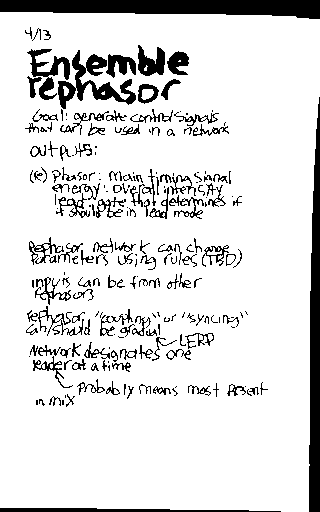 4/13
Ensemble
rephasor
Goal: generate control signals
that can be used in a network
outputs:
(re) Phasor: main timing signal
energy: overall intensity
lead: gate that determines if
it should be in lead mode
Rephasor network can change
parameters using rules (TBD)
inputs can be from other
rephasors
rephasor "coupling" or "syncing"
can/should be gradual
LERP
Network designates one
leader at a time
probably means most present
in mix